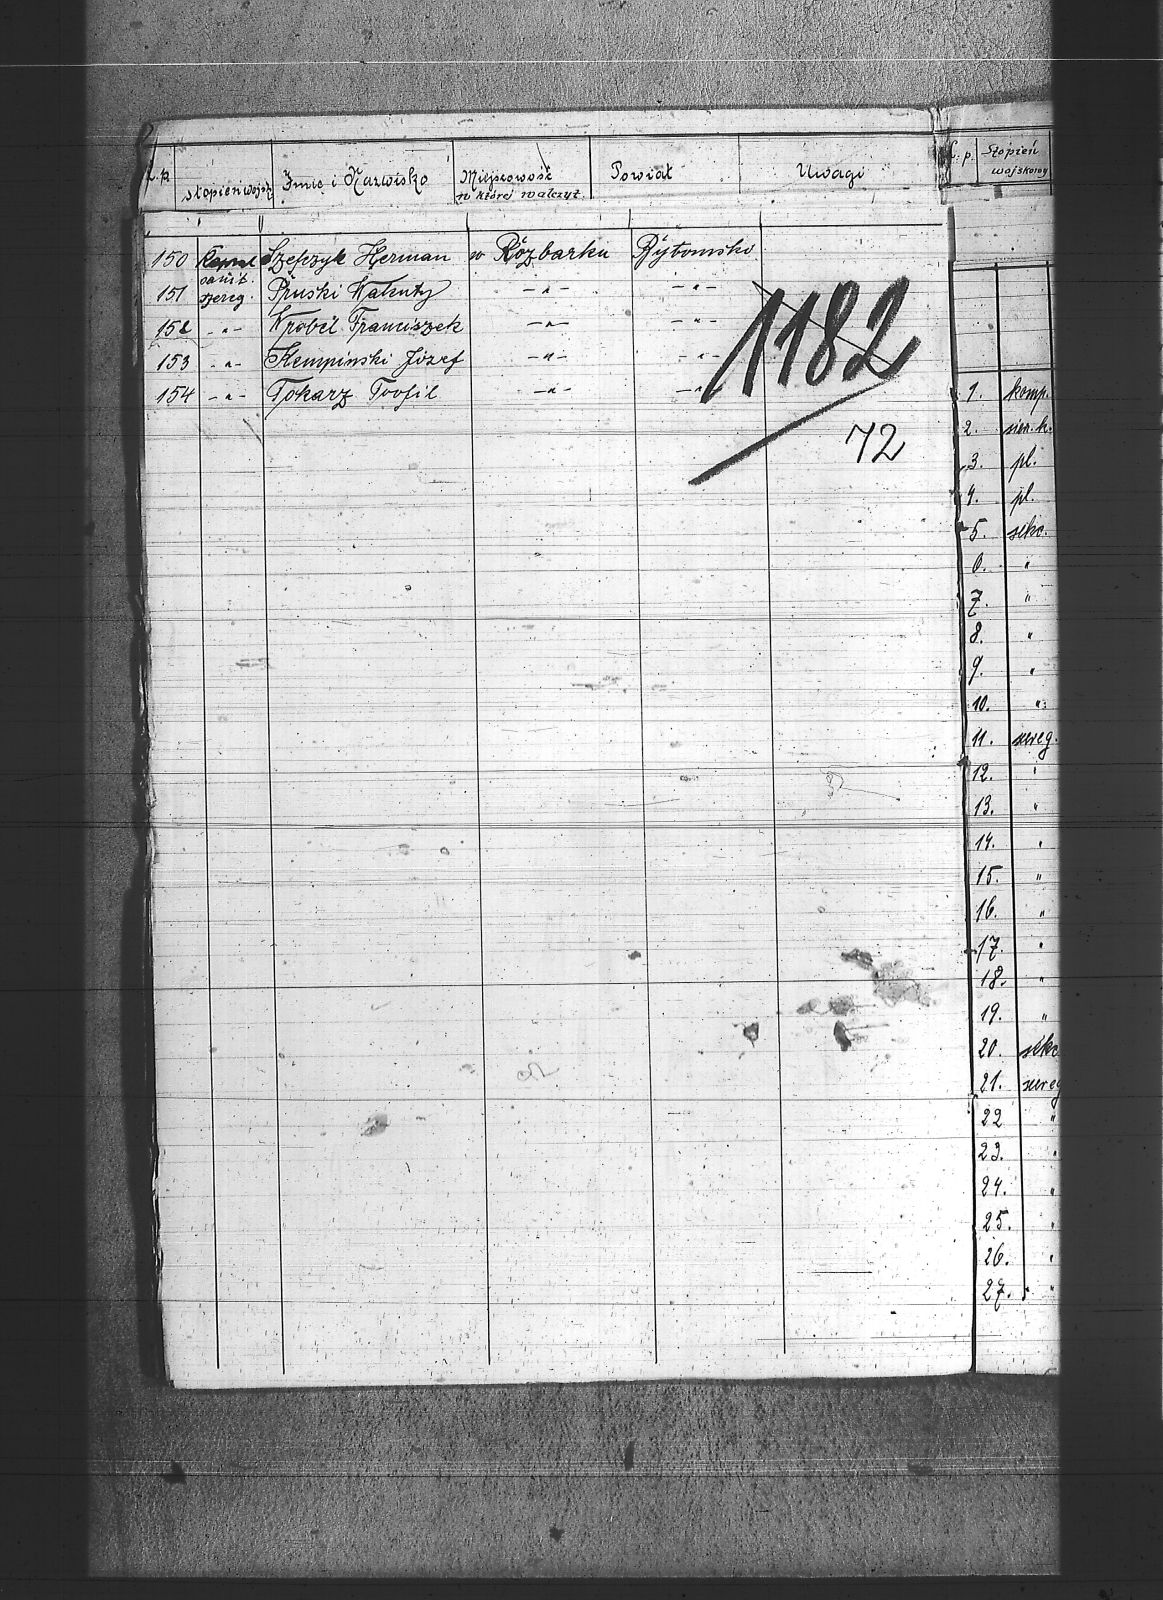 L.p. stopień wojsk Imię i Nazwisko Miejscowość w której walczył. Powiat Uwagi
150 Szefczyk Herman w Rozbarku Bytomski
sanit.
151 szereg. Pruski Walenty -"- -"-
152 -"- Wrobel Franciszek -"- -"-
153 -"- Kempinski Józef -"- -"-
154 -"- Tokarz Teofil -"- -"-
1182
72
L.p. Stopień wojskowy
1. komp.
2. sier. k.
3. pl.
4. pl.
5. sekc.
6. "
7. "
8. "
9. "
10. "
11. szereg.
12. "
13. "
14. "
15. "
16. "
17. "
18. "
19. "
20. sekc
21. szereg
22 "
23. "
24. "
25. "
26. "
27. "